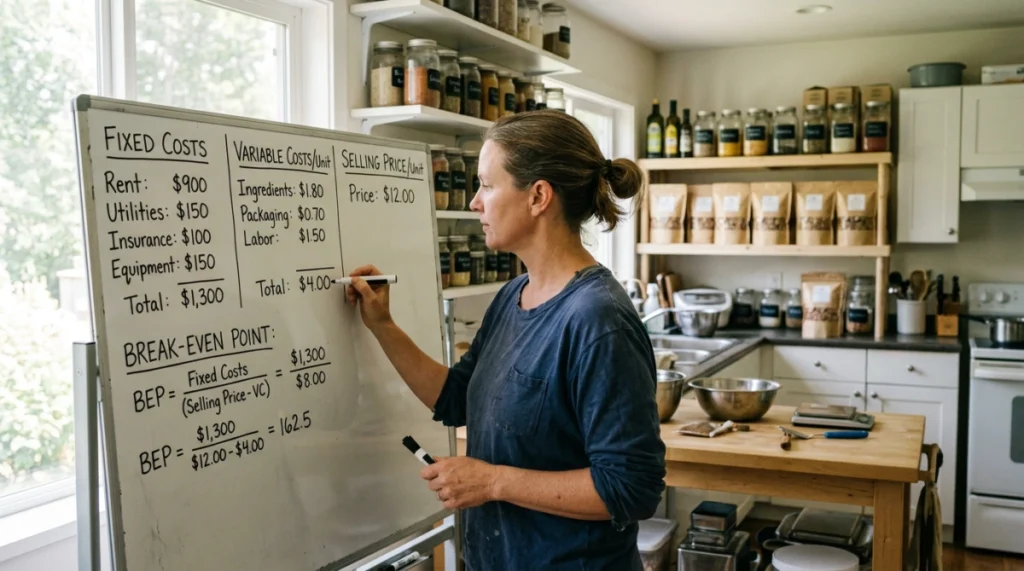 FIXED COSTS
Rent: $900
Utilities: $150
Insurance: $100
Equipment: $150
Total: $1,300
VARIABLE COSTS/Unit
Ingredients: $1.80
Packaging: $0.70
Labor: $1.50
Total: $4.00
SELLING PRICE/Unit
Price: $12.00
BREAK-EVEN POINT:
BEP = Fixed Costs / (Selling Price - VC) = $1,300 / $8.00
BEP = $1,300 / $12.00 - $4.00 = 162.5